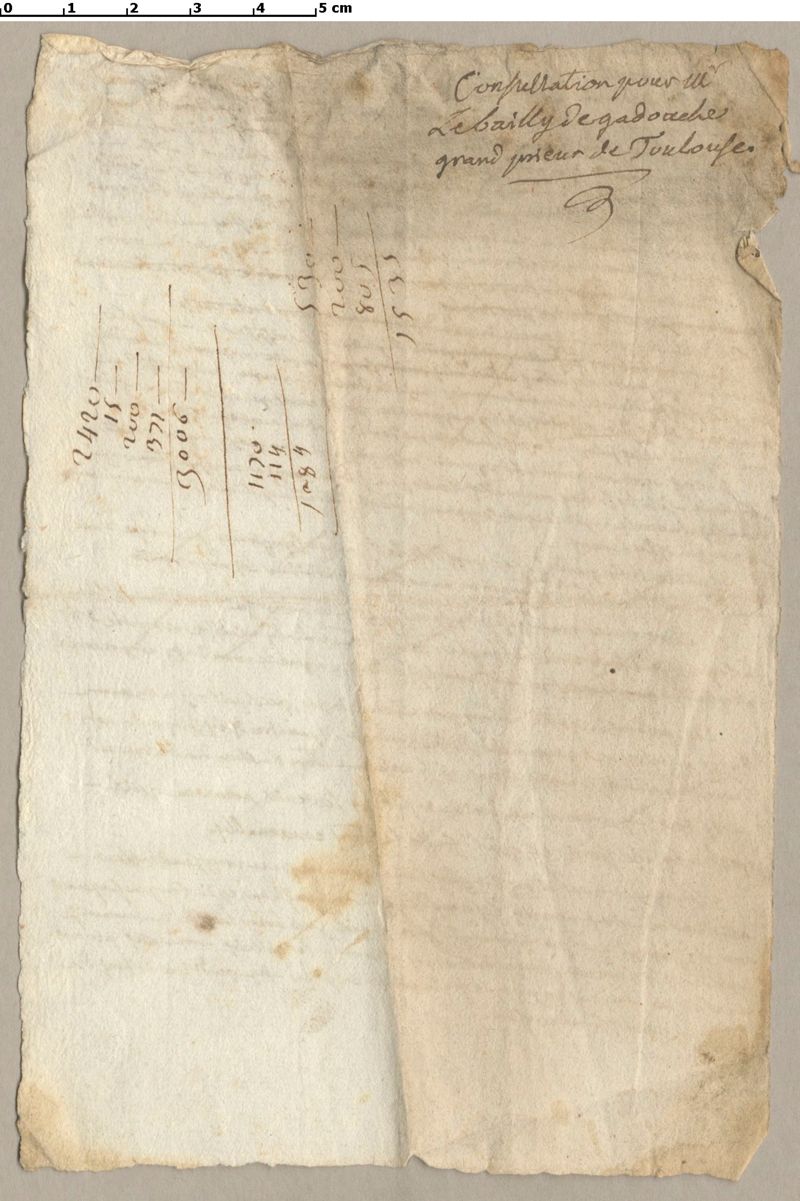 0 1 2 3 4 5 cm
Consultation pour Mr
Le bailly de gadoüeche
grand prieur de Toulouse.
530
200
805
1535
2420
15
200
371
3006
1170.
114
1084